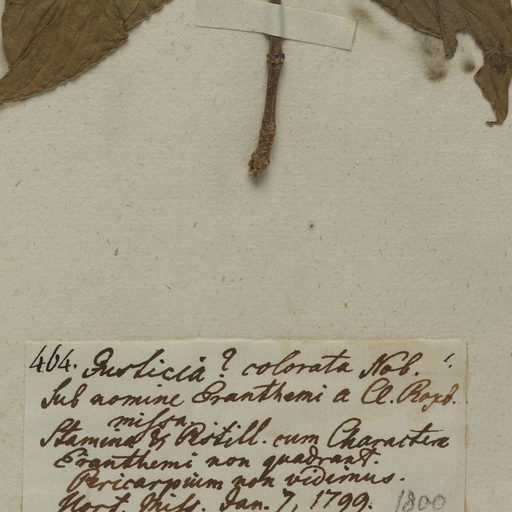 464. Justicia? colorata Nob.
Sub nomine Eranthemi a Cl. Roxb.
missa.
Stamina & Pistill. cum Charactere
Eranthemi non quadrant.
Pericarpium non vidimus.
Hort. Miss. Jan. 7, 1799. 1800